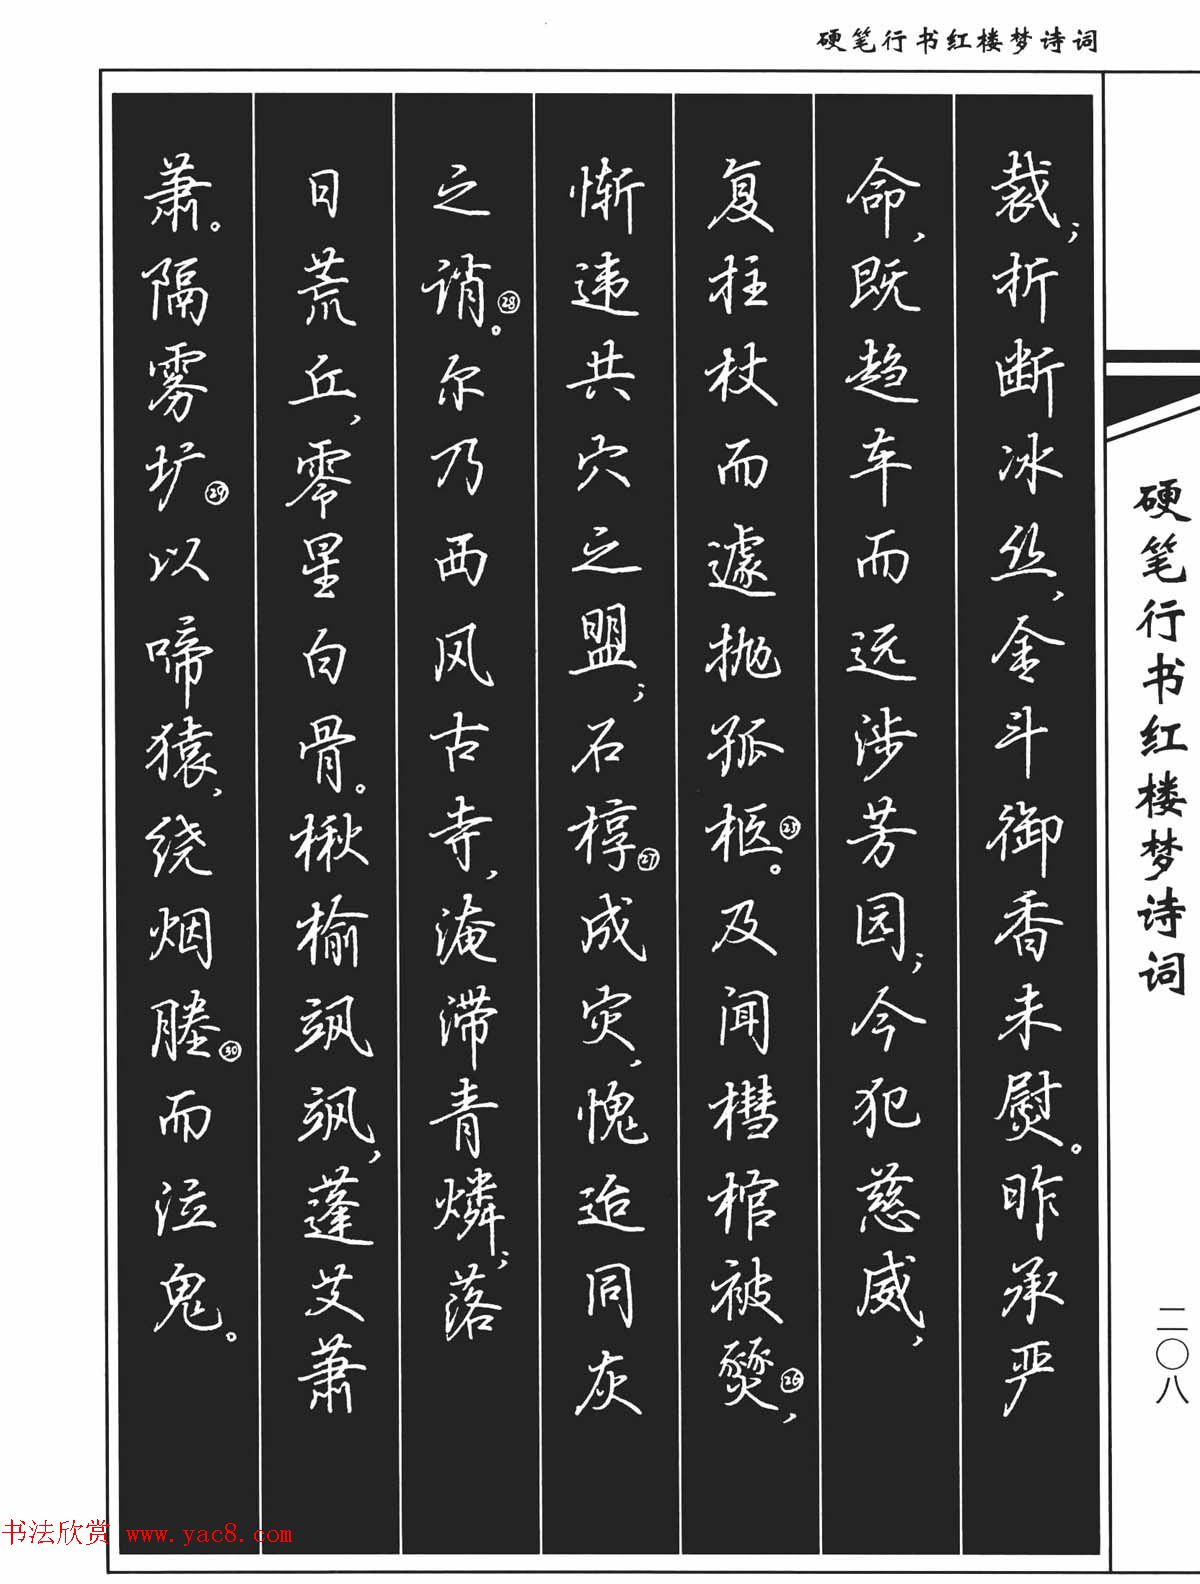 硬笔行书红楼梦诗词
裁；折断冰丝，金斗御香未熨。昨承严
命，既趋车而远涉芳园；今犯慈威，
复拄杖而遽抛孤柩㉕。及闻槥棺被燹㉖，
惭违共穴之盟；石椁㉗成灾，愧迨同灰
之诮㉘。尔乃西风古寺，淹滞青燐；落
日荒丘，零星白骨。楸榆飒飒，蓬艾萧
萧。隔雾圹㉙以啼猿，绕烟塍㉚而泣鬼。
硬笔行书红楼梦诗词
二〇八
书法欣赏 www.yac8.com